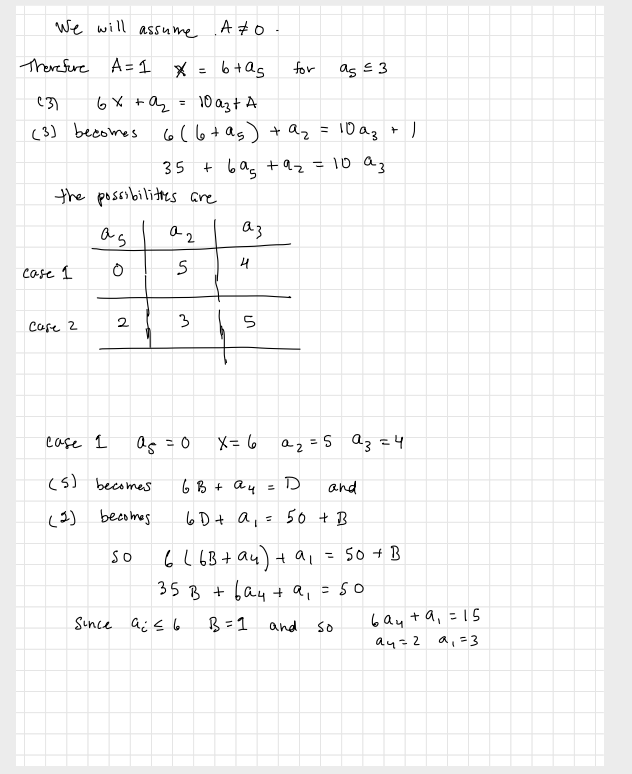 We will assume A ≠ 0.
Therefore A = 1 X = 6 + a₅ for a₅ ≤ 3
(3) 6X + a₂ = 10a₃ + A
(3) becomes 6(6 + a₅) + a₂ = 10a₃ + 1
35 + 6a₅ + a₂ = 10a₃
the possibilities are
a₅ a₂ a₃
case 1 0 5 4
case 2 2 3 5
case 1 a₅ = 0 X = 6 a₂ = 5 a₃ = 4
(5) becomes 6B + a₄ = D and
(2) becomes 6D + a₁ = 50 + B
so 6(6B + a₄) + a₁ = 50 + B
35B + 6a₄ + a₁ = 50
Since aᵢ ≤ 6 B = 1 and so 6a₄ + a₁ = 15
a₄ = 2 a₁ = 3